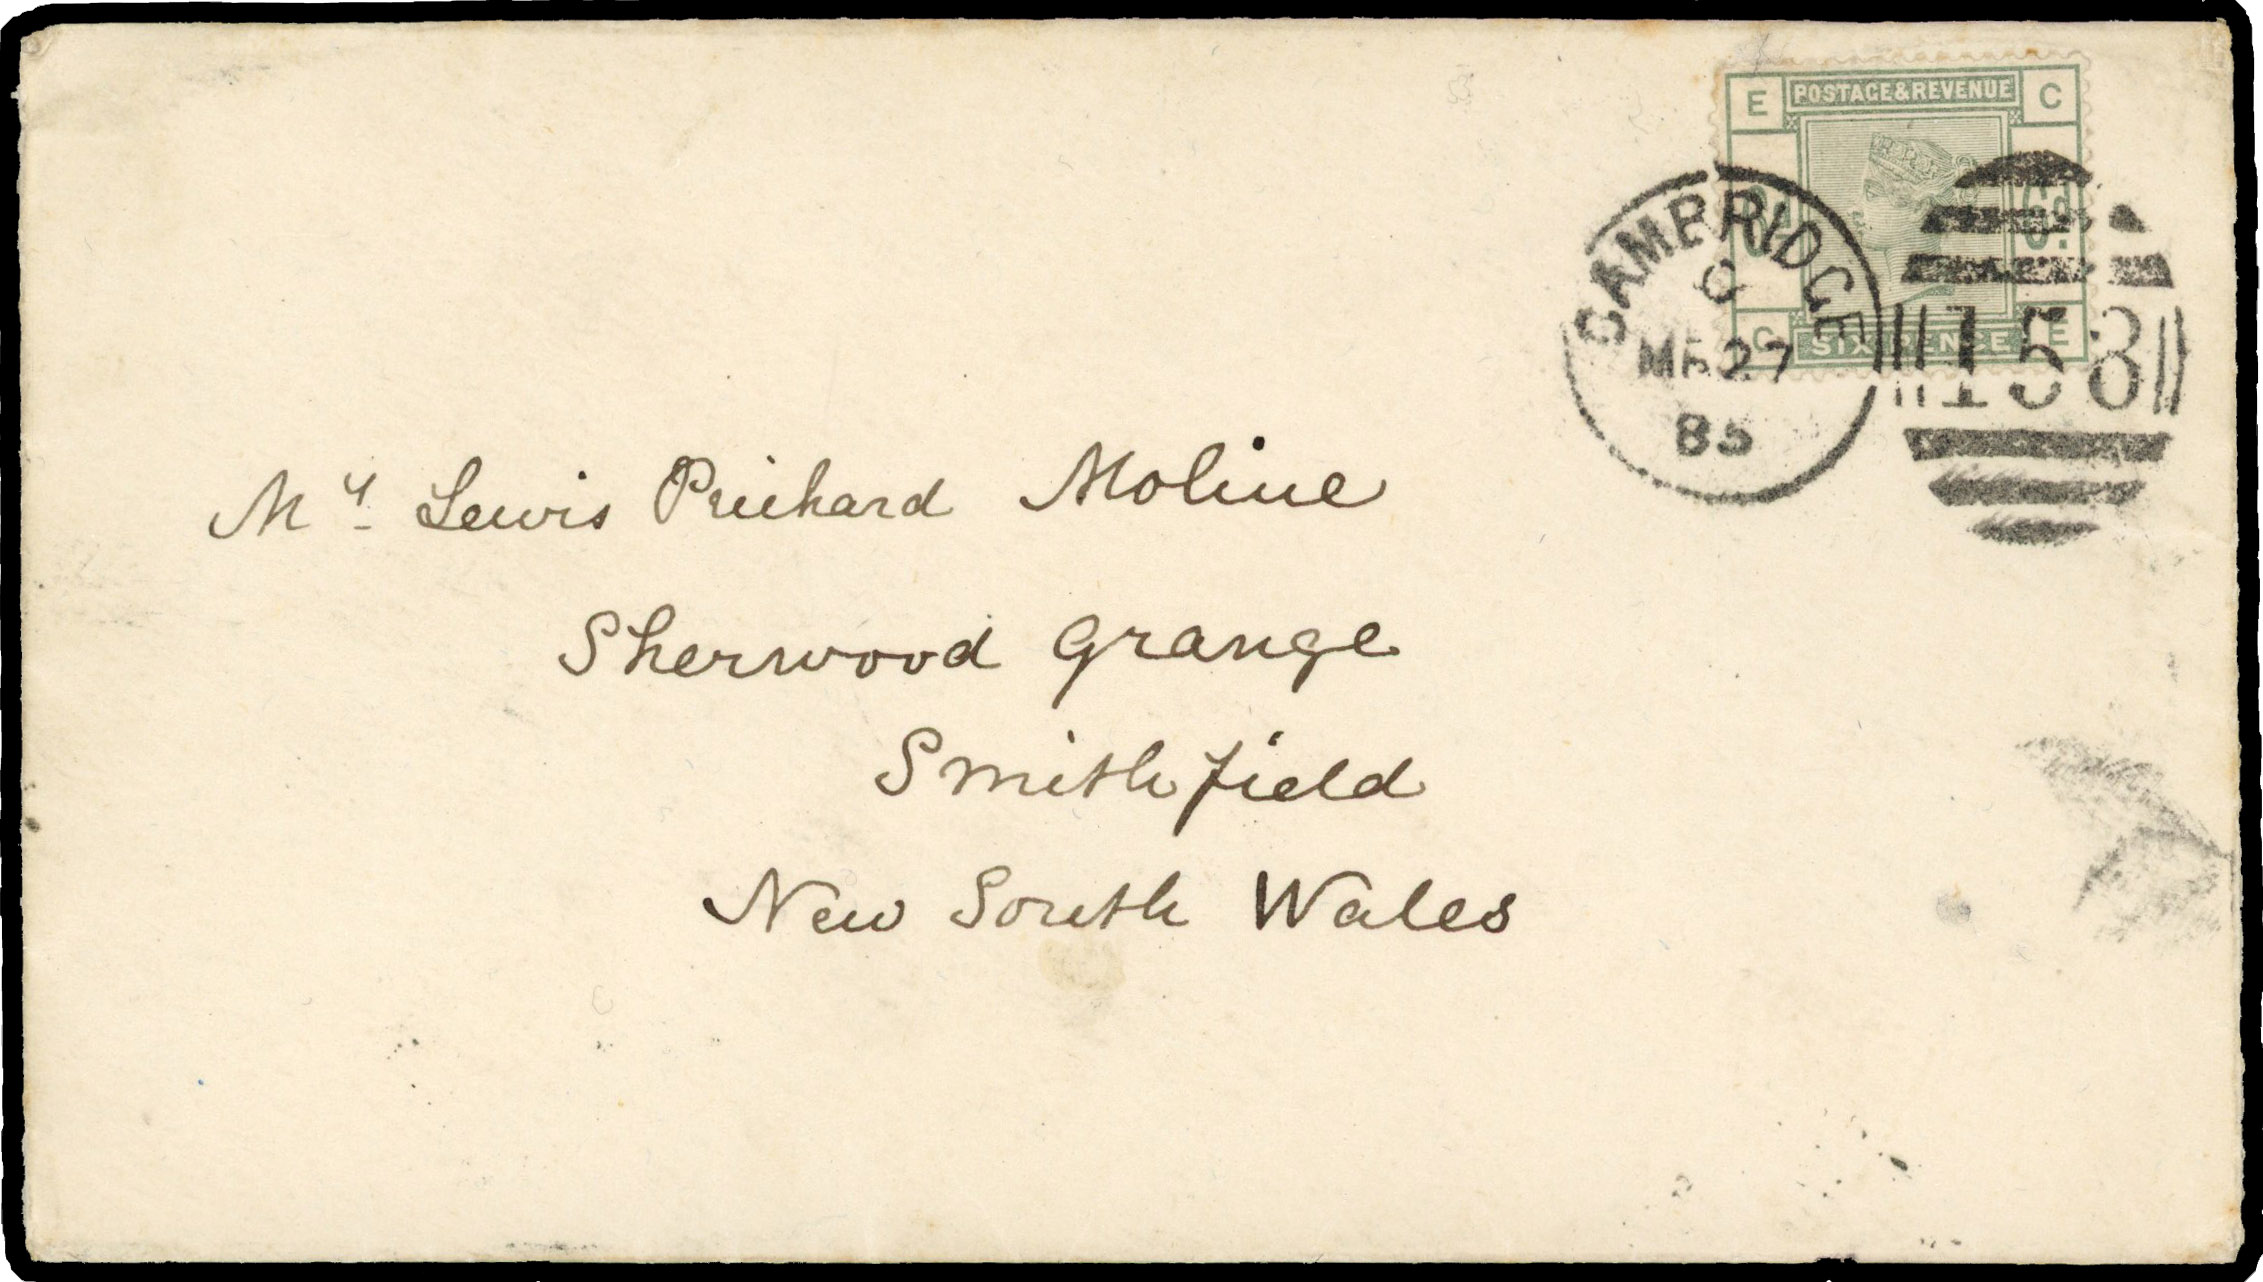 E POSTAGE & REVENUE C
CAMBRIDGE
C
MR 27
85
158
6d.
C SIX PENCE E
Mr. Lewis Prichard Moline
Sherwood Grange
Smithfield
New South Wales